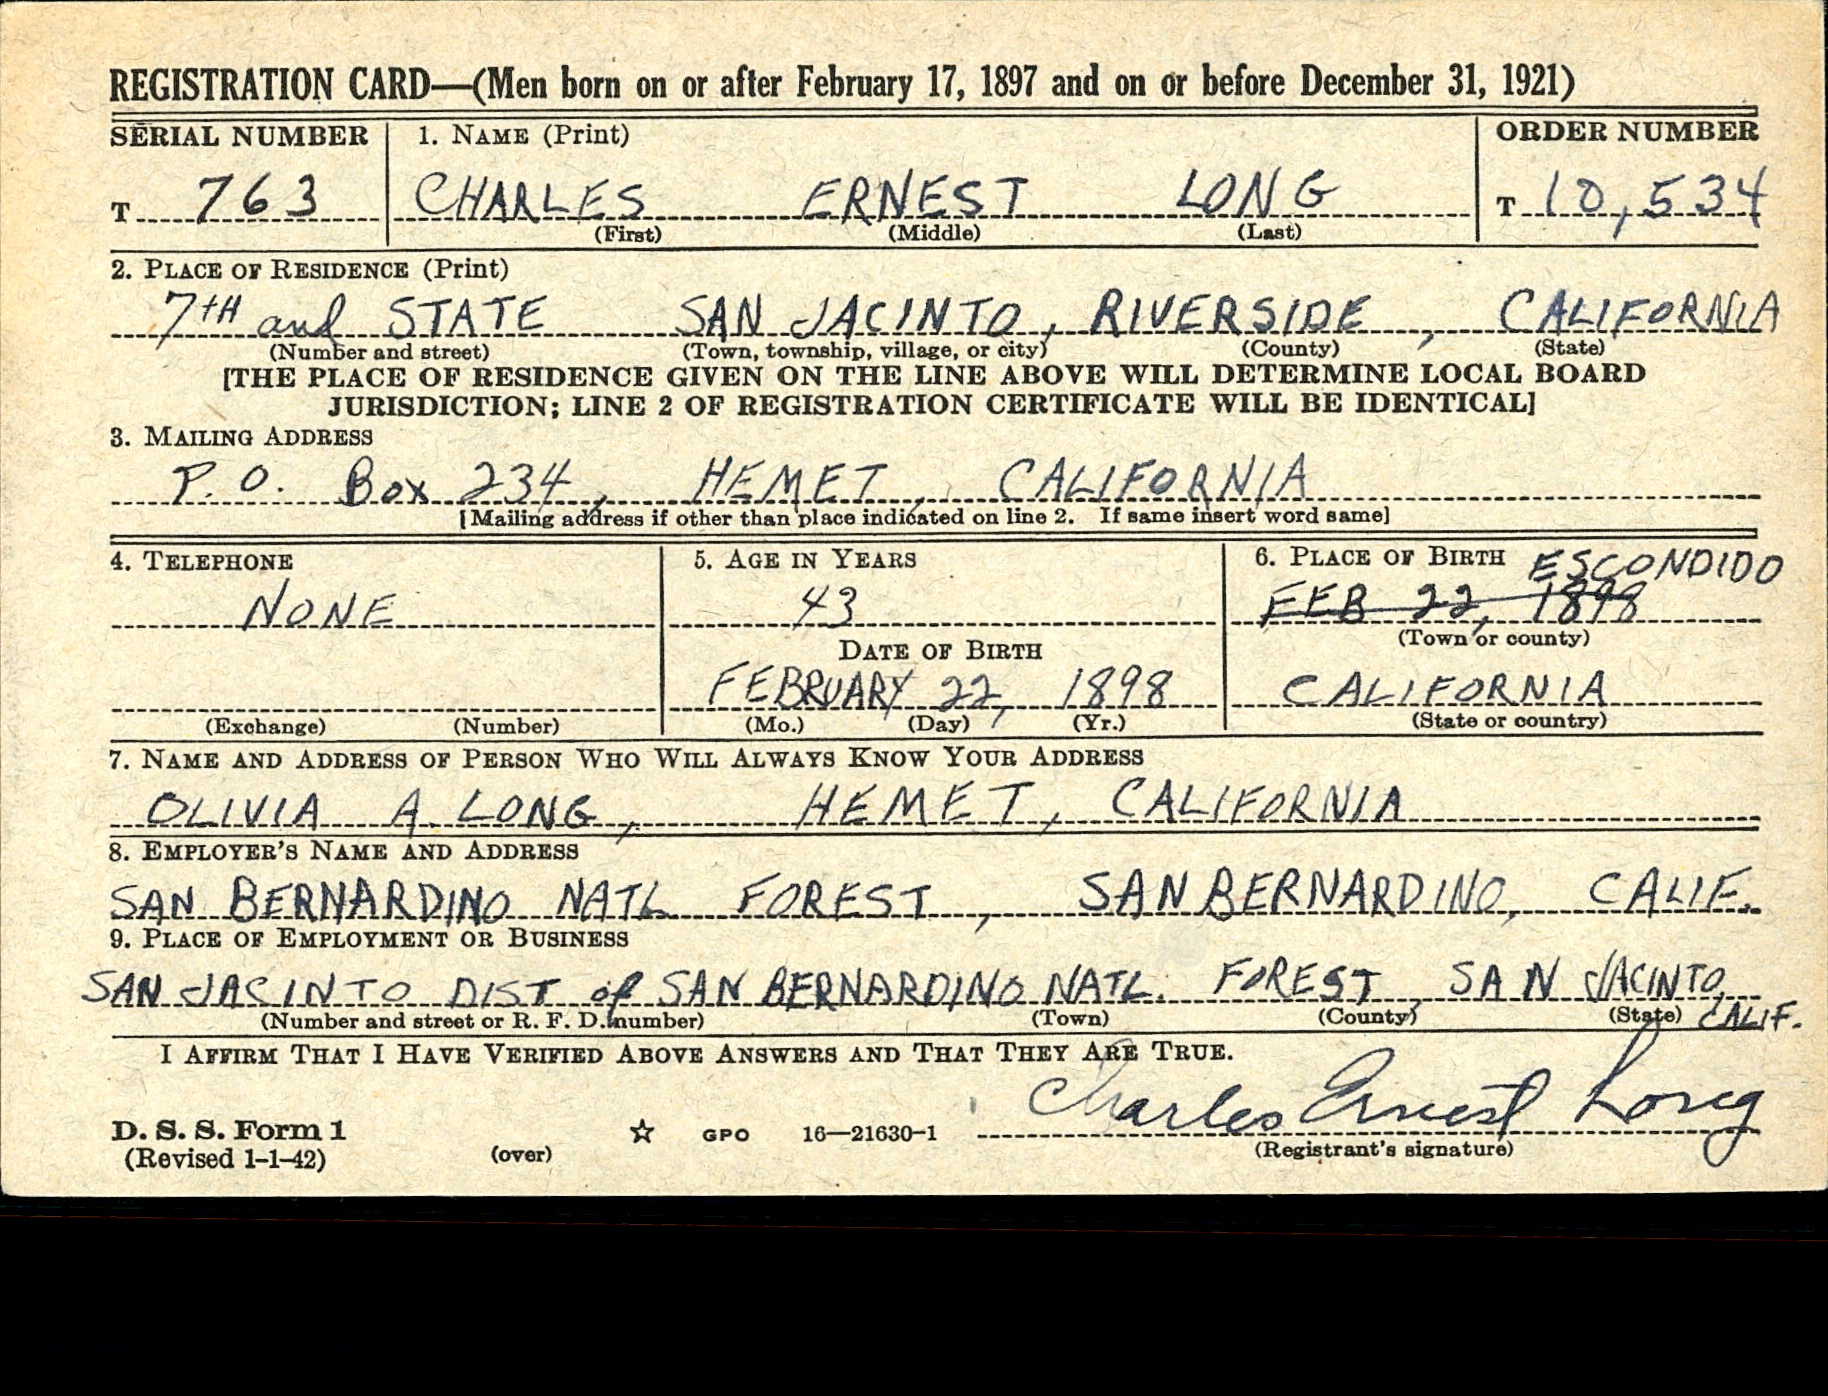 REGISTRATION CARD—(Men born on or after February 17, 1897 and on or before December 31, 1921)
SERIAL NUMBER 1. NAME (Print) ORDER NUMBER
T 763 CHARLES ERNEST LONG T 10,534
(First) (Middle) (Last)
2. PLACE OF RESIDENCE (Print)
7TH and STATE SAN JACINTO, RIVERSIDE, CALIFORNIA
(Number and street) (Town, township, village, or city) (County) (State)
[THE PLACE OF RESIDENCE GIVEN ON THE LINE ABOVE WILL DETERMINE LOCAL BOARD
JURISDICTION; LINE 2 OF REGISTRATION CERTIFICATE WILL BE IDENTICAL]
3. MAILING ADDRESS
P.O. Box 234, HEMET, CALIFORNIA
[Mailing address if other than place indicated on line 2. If same insert word same]
4. TELEPHONE 5. AGE IN YEARS 6. PLACE OF BIRTH ESCONDIDO
NONE 43 FEB 22, 1898
(Town or county)
DATE OF BIRTH
FEBRUARY 22, 1898 CALIFORNIA
(Exchange) (Number) (Mo.) (Day) (Yr.) (State or country)
7. NAME AND ADDRESS OF PERSON WHO WILL ALWAYS KNOW YOUR ADDRESS
OLIVIA A. LONG, HEMET, CALIFORNIA
8. EMPLOYER'S NAME AND ADDRESS
SAN BERNARDINO NATL FOREST, SAN BERNARDINO, CALIF.
9. PLACE OF EMPLOYMENT OR BUSINESS
SAN JACINTO DIST of SAN BERNARDINO NATL. FOREST, SAN JACINTO,
(Number and street or R. F. D. number) (Town) (County) (State) CALIF.
I AFFIRM THAT I HAVE VERIFIED ABOVE ANSWERS AND THAT THEY ARE TRUE.
Charles Ernest Long
D. S. S. Form 1
(Revised 1-1-42) (over) ☆ GPO 16—21630-1 (Registrant's signature)